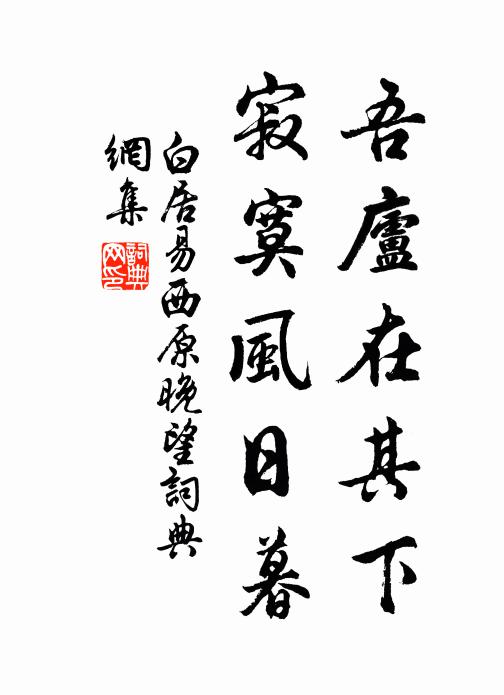 吾廬在其下
寂寞風日暮
白居易西原晚望詞典
網集
詞典
网印